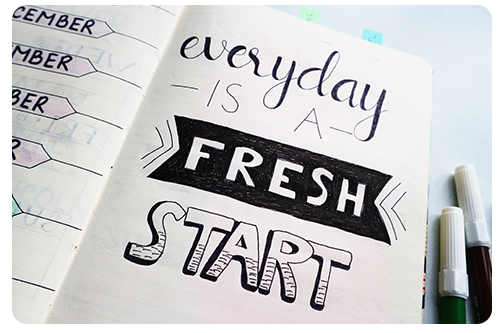 CEMBER
MBER
BER
R
everyday
IS A
FRESH
START